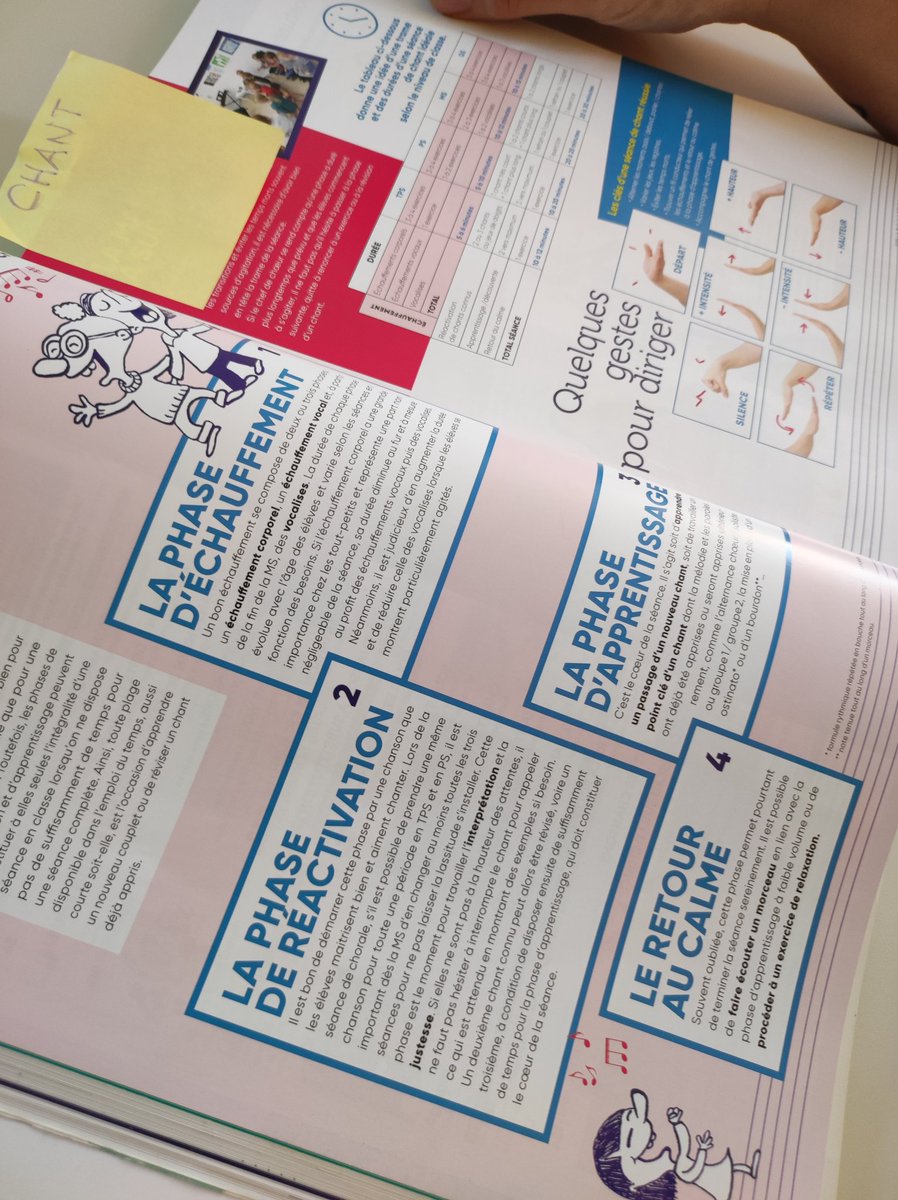 CHANT
pas de suffisamment de temps pour
une séance complète. Ainsi, toute plage
disponible dans l'emploi du temps, aussi
courte soit-elle, est l'occasion d'apprendre
un nouveau couplet ou de réviser un chant
déjà appris.
1
LA PHASE
D'ÉCHAUFFEMENT
Un bon échauffement se compose de deux ou trois phases,
un échauffement corporel, un échauffement vocal et, à
de la fin de la MS, des vocalises. La durée de chaque phase
évolue avec l'âge des élèves et varie selon les séances
fonction des besoins. Si l'échauffement corporel a une grande
importance chez les tout-petits et représente une part non
négligeable de la séance, sa durée diminue au fur et à mesure
au profit des échauffements vocaux puis des vocalises.
Néanmoins, il est judicieux d'en augmenter la durée
et de réduire celle des vocalises lorsque les élèves se
montrent particulièrement agités.
2
LA PHASE
DE RÉACTIVATION
Il est bon de démarrer cette phase par une chanson que
les élèves maitrisent bien et aiment chanter. Lors de la
séance de chorale, s'il est possible de prendre une même
chanson pour toute une période en TPS et en PS, il est
important dès la MS d'en changer au moins toutes les trois
séances pour ne pas laisser la lassitude s'installer. Cette
phase est le moment pour travailler l'interprétation et la
justesse. Si elles ne sont pas à la hauteur des attentes, il
ne faut pas hésiter à interrompre le chant pour rappeler
ce qui est attendu en montrant des exemples si besoin.
Un deuxième chant connu peut alors être révisé, voire un
troisième, à condition de disposer ensuite de suffisamment
de temps pour la phase d'apprentissage, qui doit constituer
le cœur de la séance.
3
LA PHASE
D'APPRENTISSAGE
C'est le cœur de la séance. Il s'agit soit d'apprendre
un passage d'un nouveau chant, soit de travailler un
point clé d'un chant dont la mélodie et les paroles
ont déjà été apprises ou seront apprises
rement, comme l'alternance chœur
ou groupe 1 / groupe 2, la mise en place d'un
ostinato* ou d'un bourdon**...
4
LE RETOUR
AU CALME
Souvent oubliée, cette phase permet pourtant
de terminer la séance sereinement. Il est possible
de faire écouter un morceau en lien avec la
phase d'apprentissage à faible volume ou de
procéder à un exercice de relaxation.
* formule rythmique répétée en boucle tout au long
** note tenue tout au long d'un morceau.
les transitions et éviter les temps morts souvent
sources d'agitation, il est nécessaire d'avoir bien
en tête la trame de la séance.
Si le chef de chœur se rend compte qu'une phase a duré
plus longtemps que prévu et que les élèves commencent
à s'agiter, il ne faut pas qu'il hésite à passer à la phase
suivante, quitte à renoncer à un exercice ou à la révision
d'un chant.
Le tableau ci-dessous
donne une idée d'une trame
et des durées d'une séance
de chant idéale
selon le niveau de classe.
DURÉE TPS PS MS GS
ÉCHAUFFEMENT
Échauffements corporels
Échauffements vocaux
Vocalises
TOTAL
Réactivation
de chants connus
Apprentissage / découverte
Retour au calme
TOTAL SÉANCE
Les clés d'une séance de chant réussie
Quelques
gestes
pour diriger
DÉPART
+ HAUTEUR
- HAUTEUR
+ INTENSITÉ
- INTENSITÉ
SILENCE
RÉPÉTER